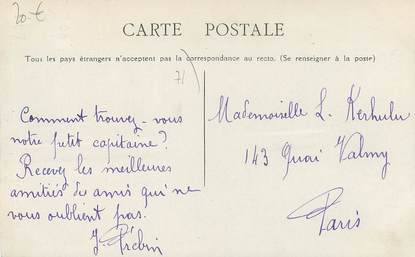 20.-€
CARTE POSTALE
Tous les pays étrangers n'acceptent pas la correspondance au recto. (Se renseigner à la poste)
71
Comment trouvez-vous
notre petit capitaine?
Recevez les meilleures
amitiés de amis qui ne
vous oublient pas.
Mademoiselle L. Kerhulu
143 Quai Valmy
Paris